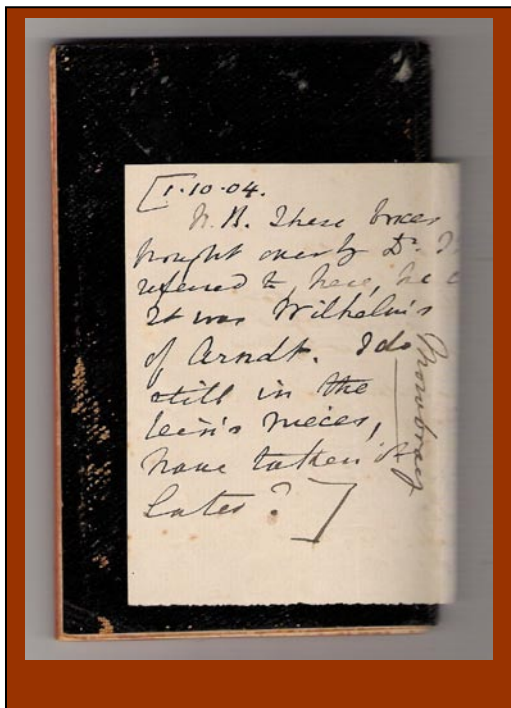 [1·10·04.
N. B. These boxes
brought over by Dr.
referred to, here, he
It was Wilhelm's
of Arndt. I do
still in the
nieces,
have taken
Later? ]